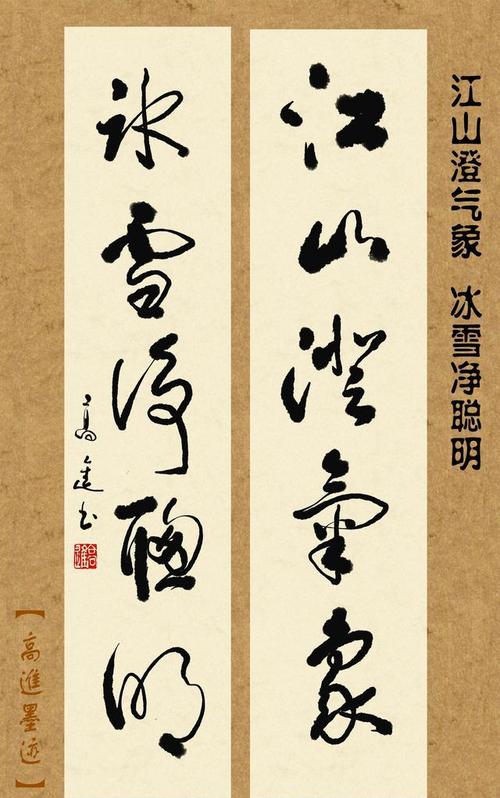 江山澄气象 冰雪净聪明
江山澄氣象
冰雪净聰明
高進书
高進
【高進墨迹】